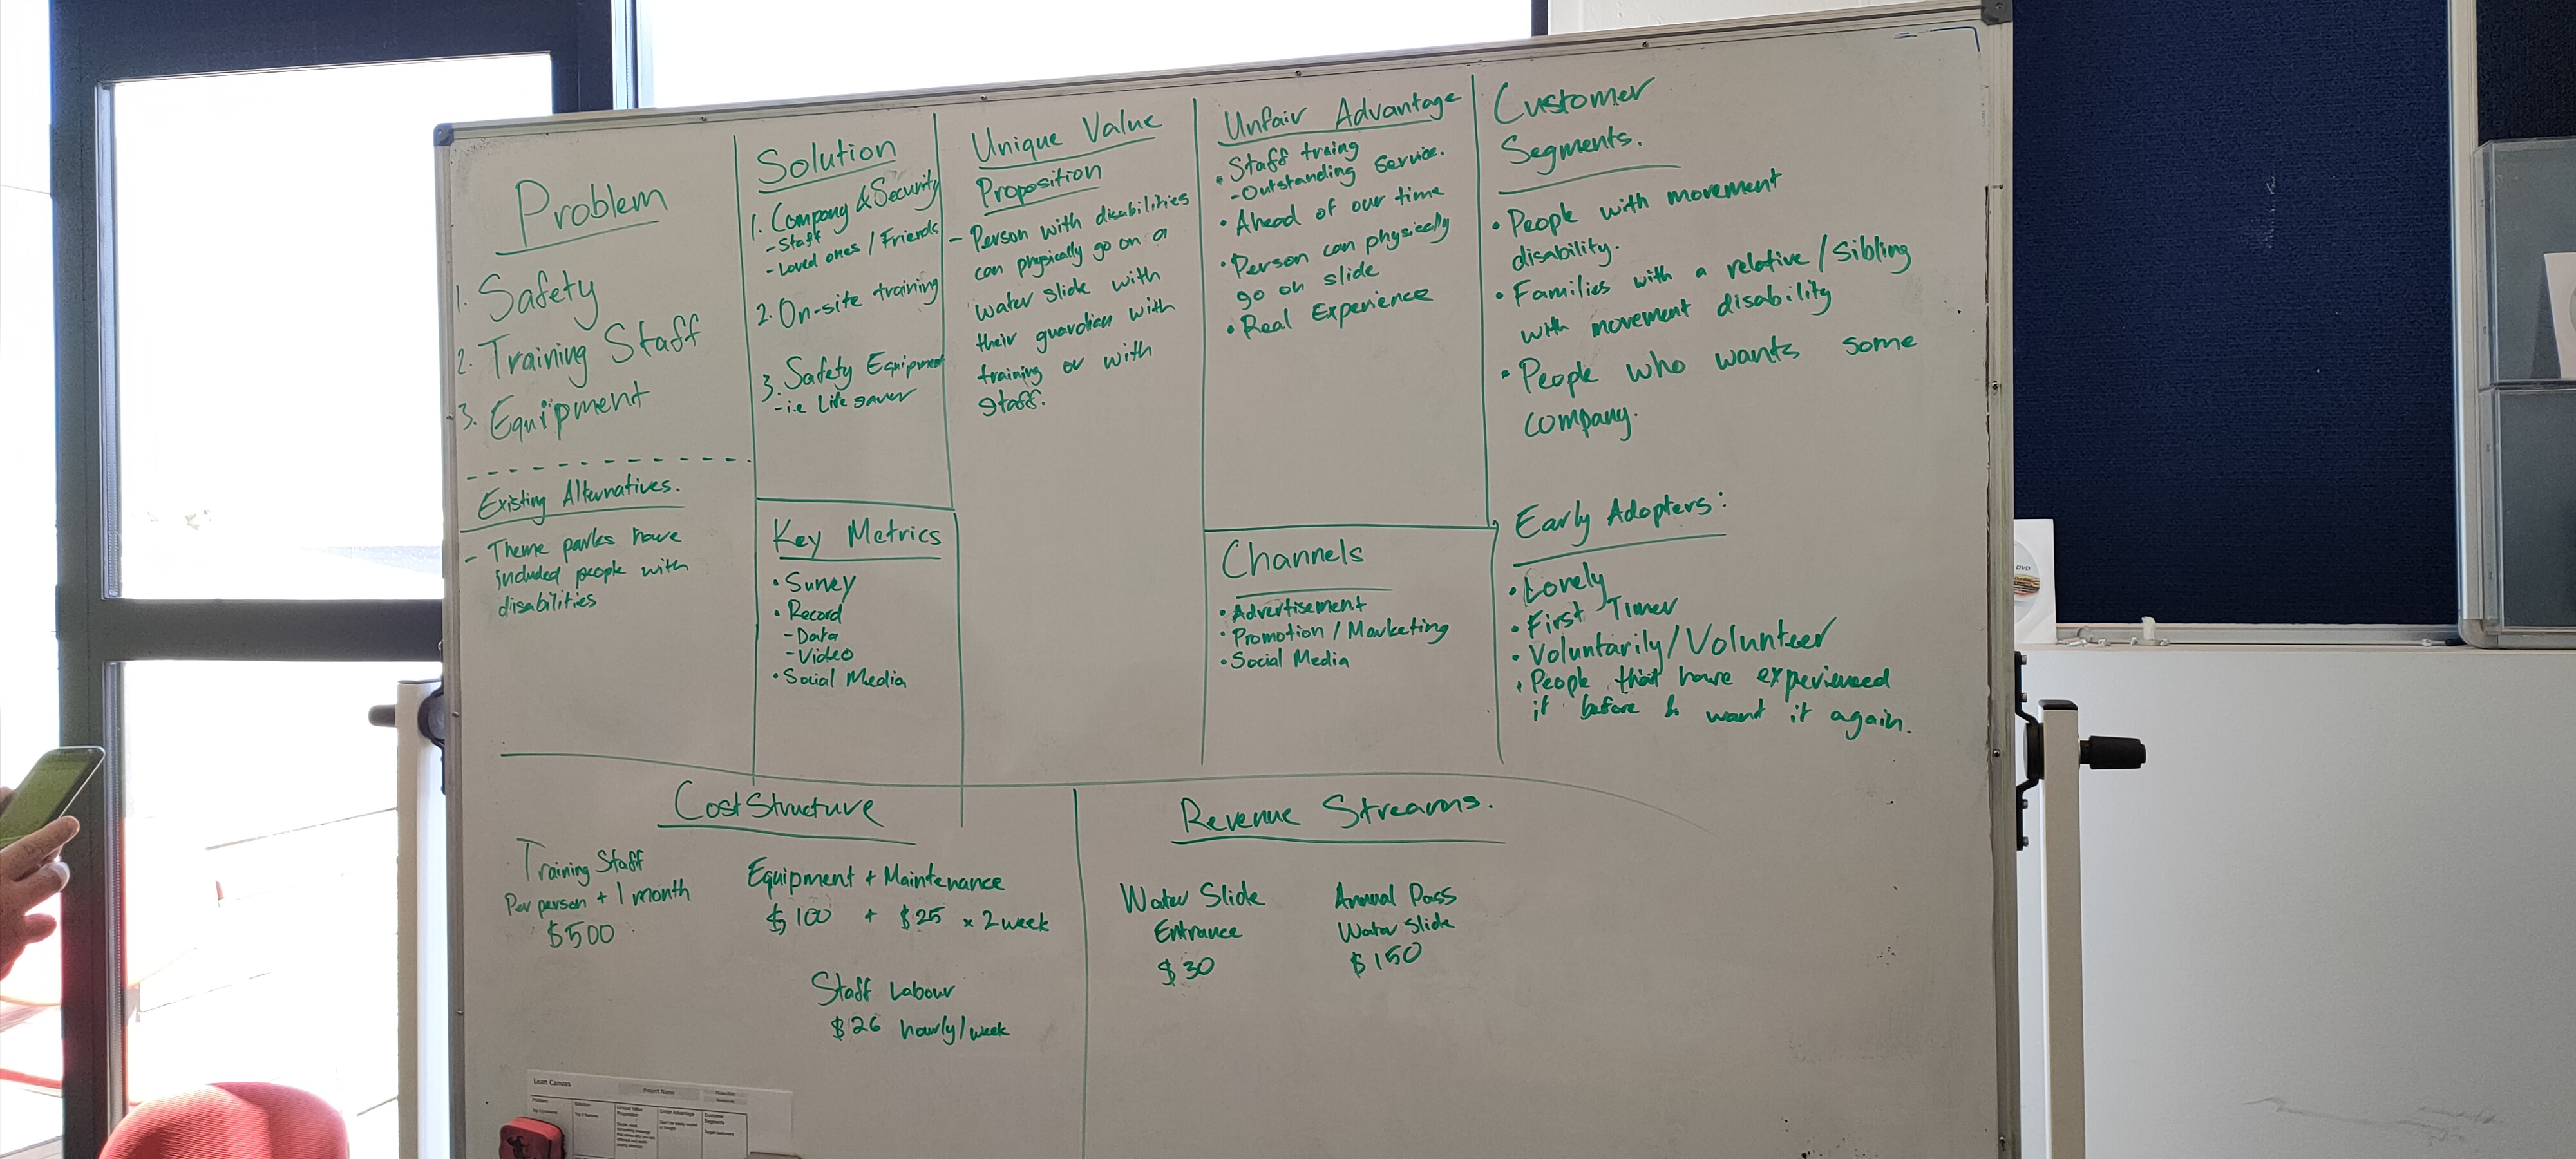 Problem
1. Safety
2. Training Staff
3. Equipment
Existing Alternatives.
- Theme parks have
included people with
disabilities
Solution
1. Company & Security
- Staff
- Loved ones / Friends
2. On-site training
3. Safety Equipment
- i.e Life saver
Key Metrics
• Survey
• Record
- Data
- Video
• Social Media
Unique Value
Proposition
- Person with disabilities
can physically go on a
water slide with
their guardian with
training or with
staff.
Unfair Advantage
• Staff traing
- Outstanding Service.
• Ahead of our time
• Person can physically
go on slide
• Real Experience
Channels
• Advertisement
• Promotion / Marketing
• Social Media
Customer
Segments.
• People with movement
disability.
• Families with a relative / Sibling
with movement disability
• People who wants some
company.
Early Adopters:
• Lonely
• First Timer
• Voluntarily/Volunteer
• People that have experienced
it before & want it again.
Cost Structure
Training Staff
Per person + 1 month
$500
Equipment + Maintenance
$100 + $25 x 2 week
Staff Labour
$26 hourly/week
Revenue Streams.
Water Slide
Entrance
$30
Annual Pass
Water Slide
$150
Lean Canvas
Project Name
Problem
Solution
Unique Value
Proposition
Unfair Advantage
Customer
Segments
DVD